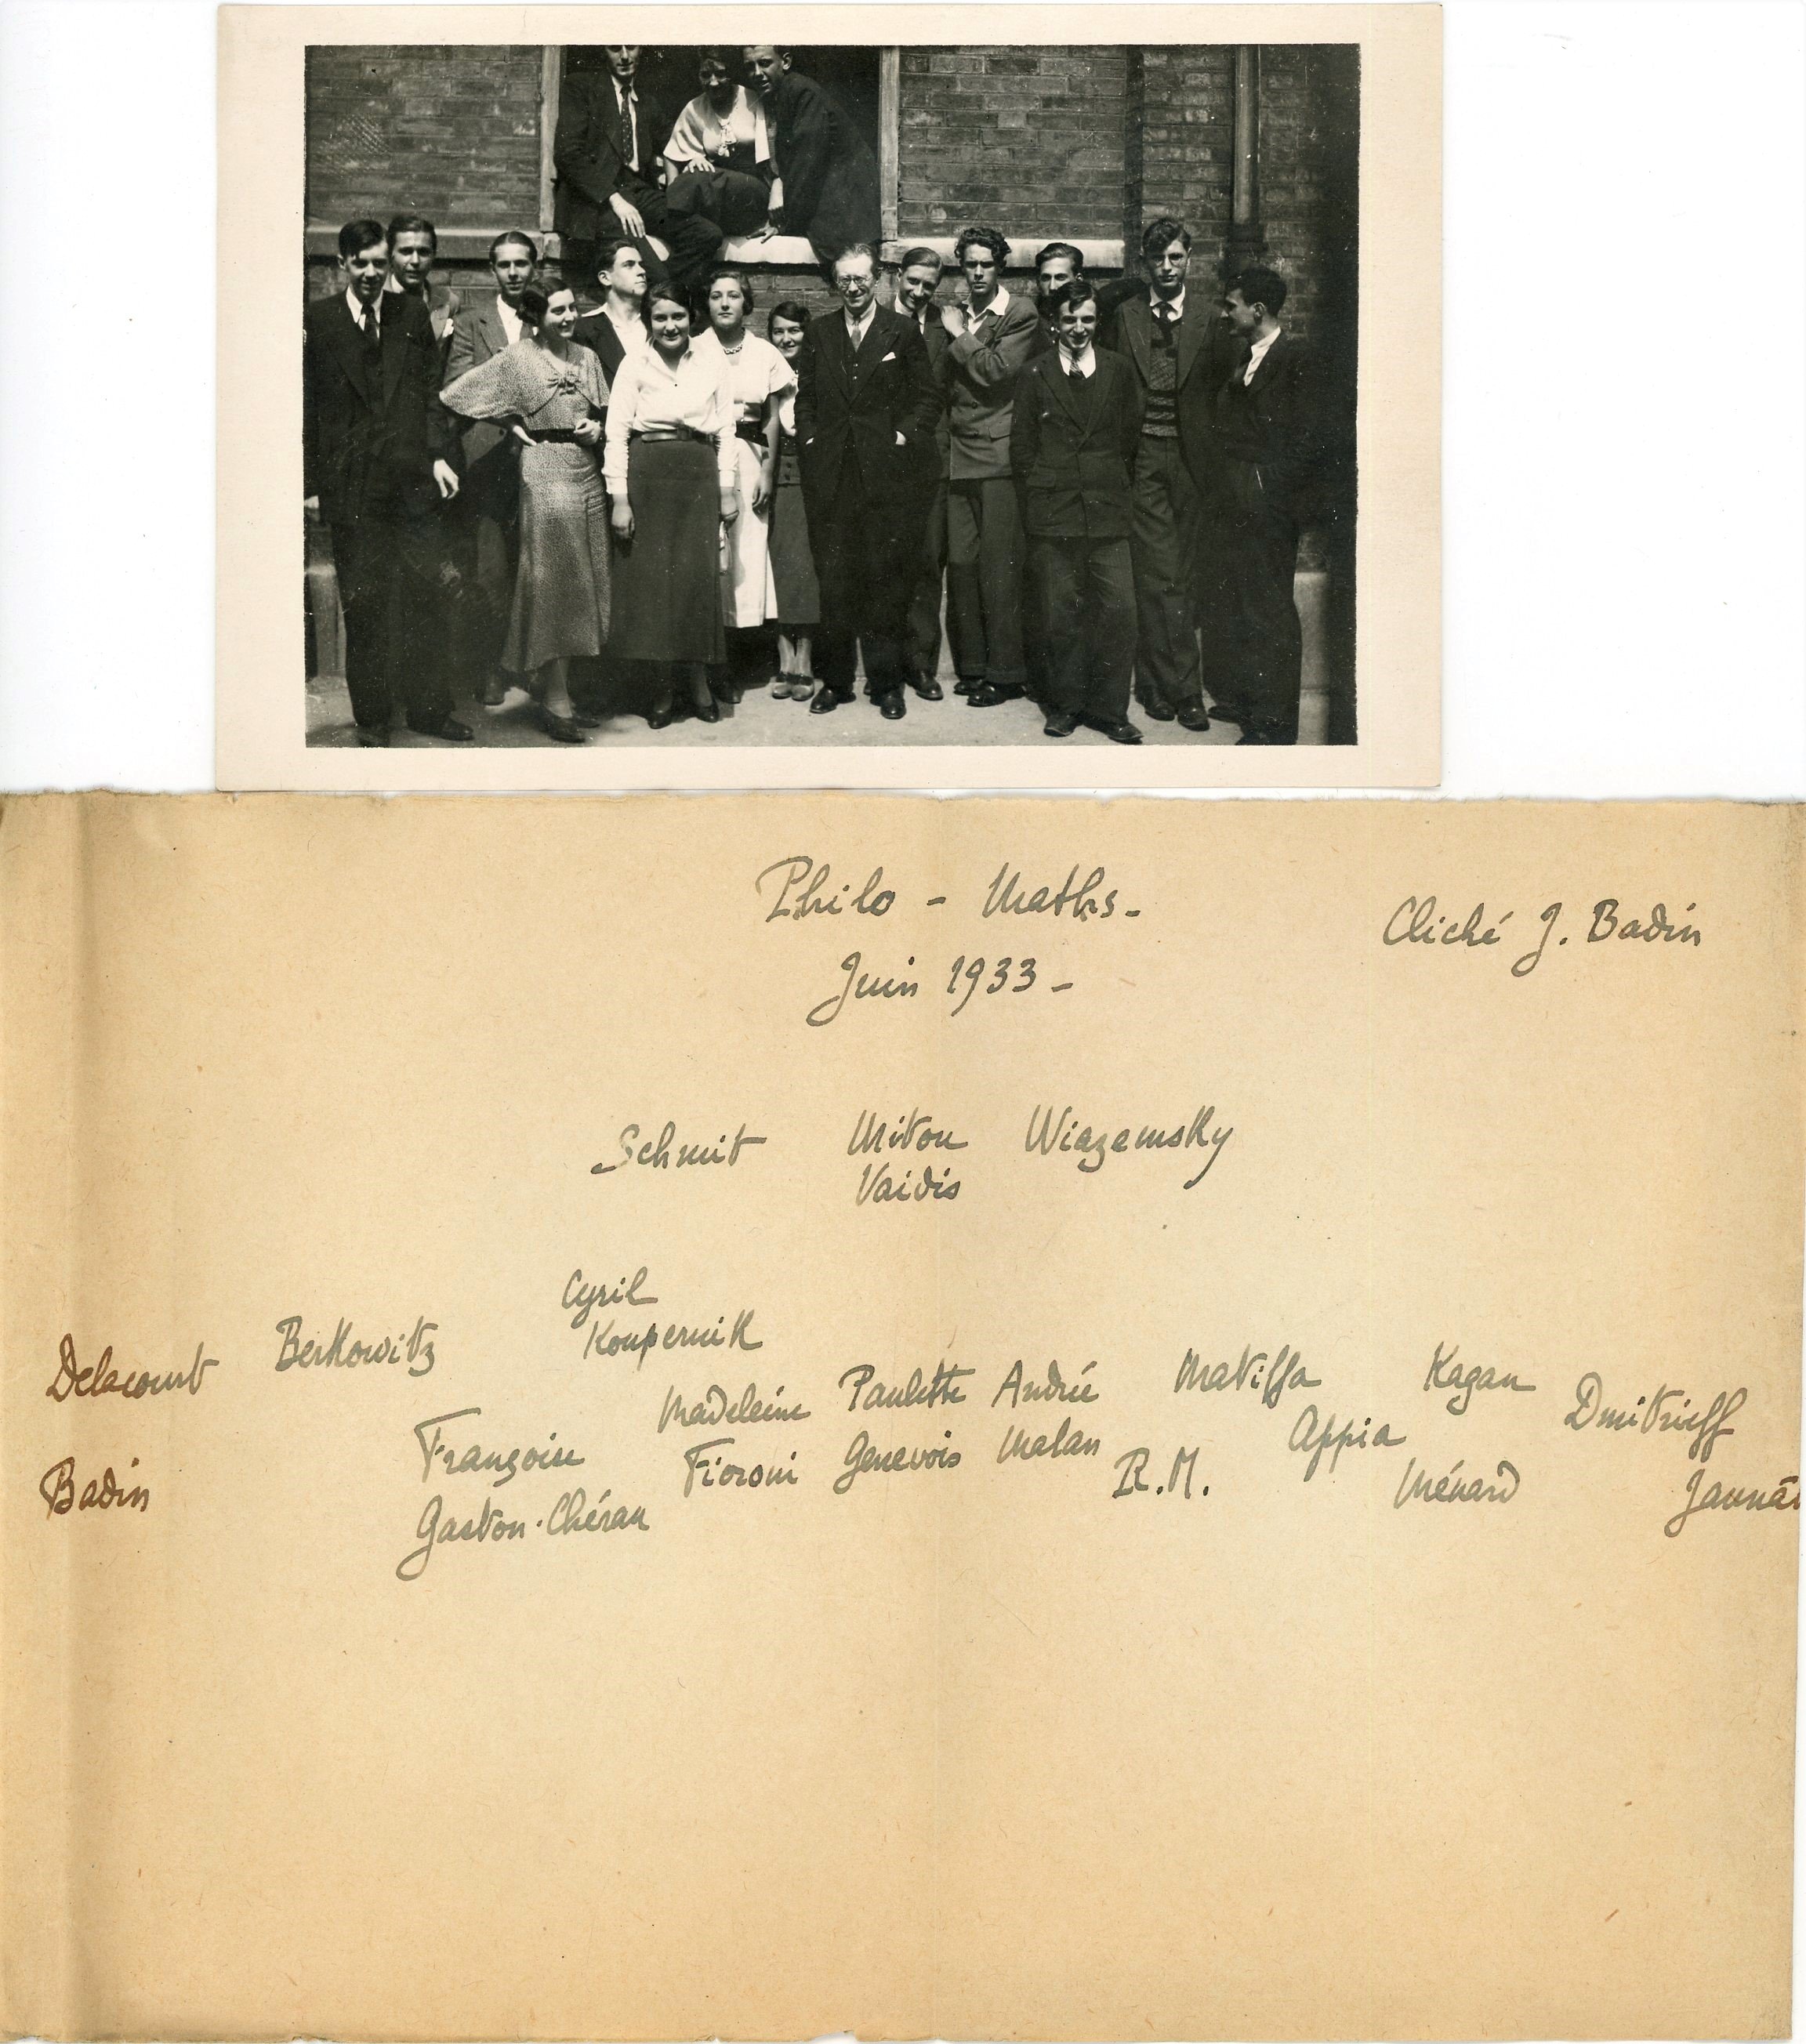 Philo - Maths -
Cliché J. Badin
Juin 1933 -
Schmit Mitou Wiazemsky
Vaidis
Cyril
Koupernik
Delacourt Berkowitz
Madeleine Paulette Andrée Matiffa Kagan Dmitrieff
Françoise Fioroni Genevois Malan Appia
Badin R.M. Ménard
Gaston-Chérau